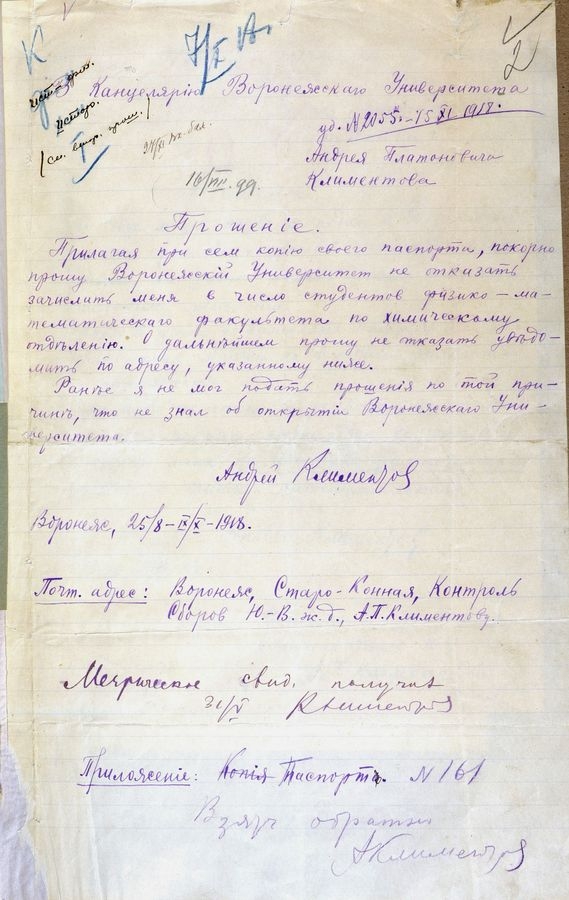 К
7/X А.
2
В Канцелярію Воронежсскаго Университета
истор.
уд. №2055 15 XI 1918.
Андрея Платоновича
16/VII. 99.
Климентова
Прошеніе.
Прилагая при сем копію своего паспорта, покорно
прошу Воронежсскій Университет не отказать
зачислить меня в число студентов физико-ма-
тематическаго факультета по химическому
отдѣленію. О дальнѣйшем прошу не отказать увѣдо-
мить по адресу, указанному ниже.
Раньше я не мог подать прошенія по той при-
чинѣ, что не знал об открытіи Воронежсскаго Уни-
верситета.
Андрей Климентов
Воронеж, 25/8-IX/X-1918.
Почт. адрес: Воронеж, Старо-Конная, Контроль
Сборов Ю.-В. ж. д., А.П.Климентову.
Метрическое свид. получил
31/X Климентов
Приложеніе: Копія Паспорта. N 161
Взял обратно
АКлиментов